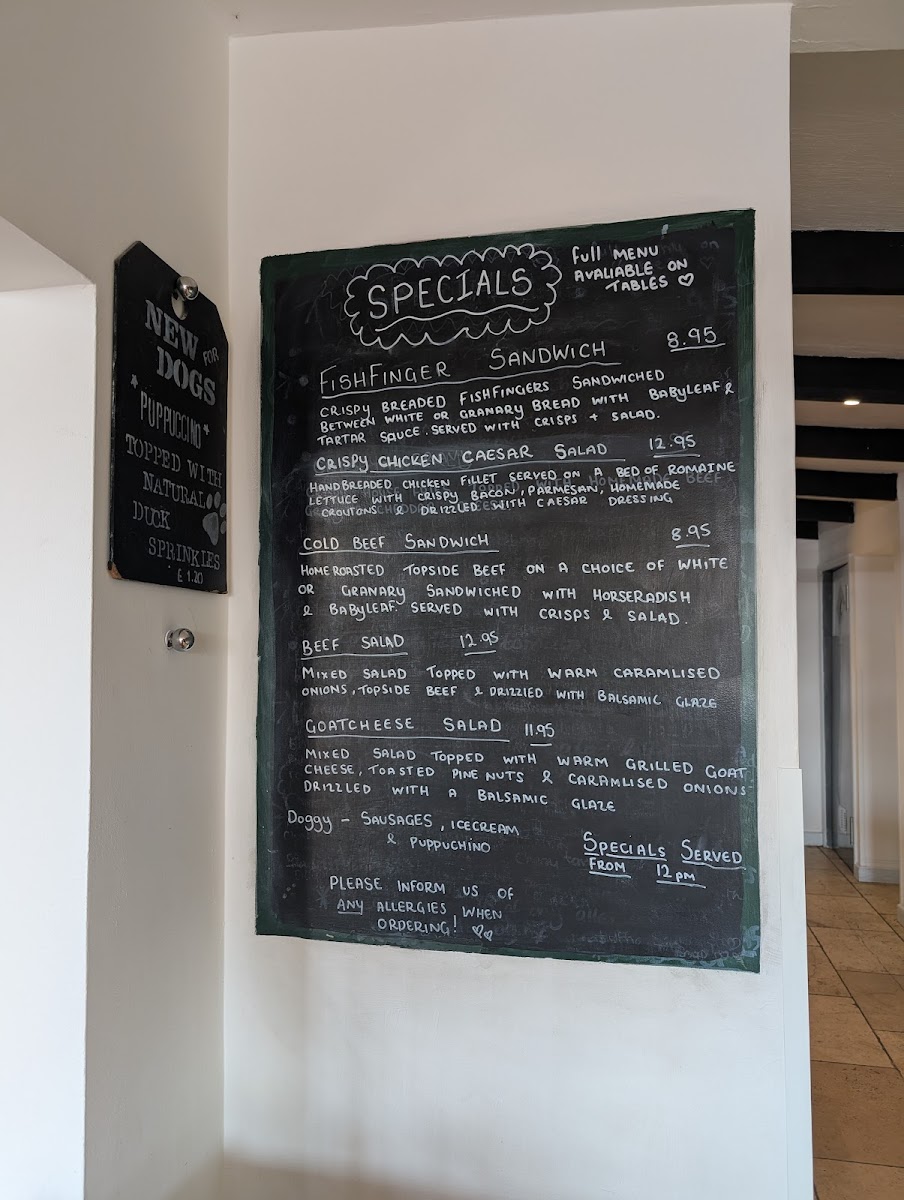 NEW FOR
DOGS
PUPPUCCINO
TOPPED WITH
NATURAL
DUCK
SPRINKLES
£1.20
SPECIALS
Full MENU
AVALIABLE ON
TABLES
FISHFINGER SANDWICH 8.95
CRISPY BREADED FISHFINGERS SANDWICHED
BETWEEN WHITE OR GRANARY BREAD WITH BABYLEAF &
TARTAR SAUCE. SERVED WITH CRISPS + SALAD.
CRISPY CHICKEN CAESAR SALAD 12.95
HANDBREADED CHICKEN FILLET SERVED ON A BED OF ROMAINE
LETTUCE WITH CRISPY BACON, PARMESAN, HOMEMADE
CROUTONS & DRIZZLED WITH CAESAR DRESSING
COLD BEEF SANDWICH 8.95
HOME ROASTED TOPSIDE BEEF ON A CHOICE OF WHITE
OR GRANARY SANDWICHED WITH HORSERADISH
& BABYLEAF. SERVED WITH CRISPS & SALAD.
BEEF SALAD 12.95
MIXED SALAD TOPPED WITH WARM CARAMLISED
ONIONS, TOPSIDE BEEF & DRIZZLED WITH BALSAMIC GLAZE
GOATCHEESE SALAD 11.95
MIXED SALAD TOPPED WITH WARM GRILLED GOAT
CHEESE, TOASTED PINE NUTS & CARAMLISED ONIONS
DRIZZLED WITH A BALSAMIC GLAZE
Doggy - SAUSAGES, ICECREAM
& PUPPUCHINO
SPECIALS SERVED
FROM 12pm
PLEASE INFORM US OF
ANY ALLERGIES WHEN
ORDERING!